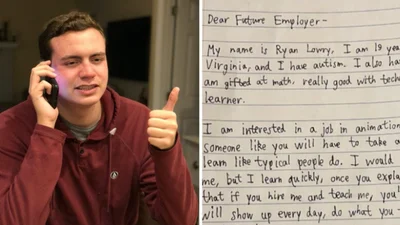 Dear Future Employer-
My name is Ryan Lowry, I am 19 yea
Virginia, and I have autism. I also ha
am gifted at math, really good with tech
learner.
I am interested in a job in animation
someone like you will have to take a
learn like typical people do. I would
me, but I learn quickly, once you expla
that if you hire me and teach me, you'
will show up every day, do what you